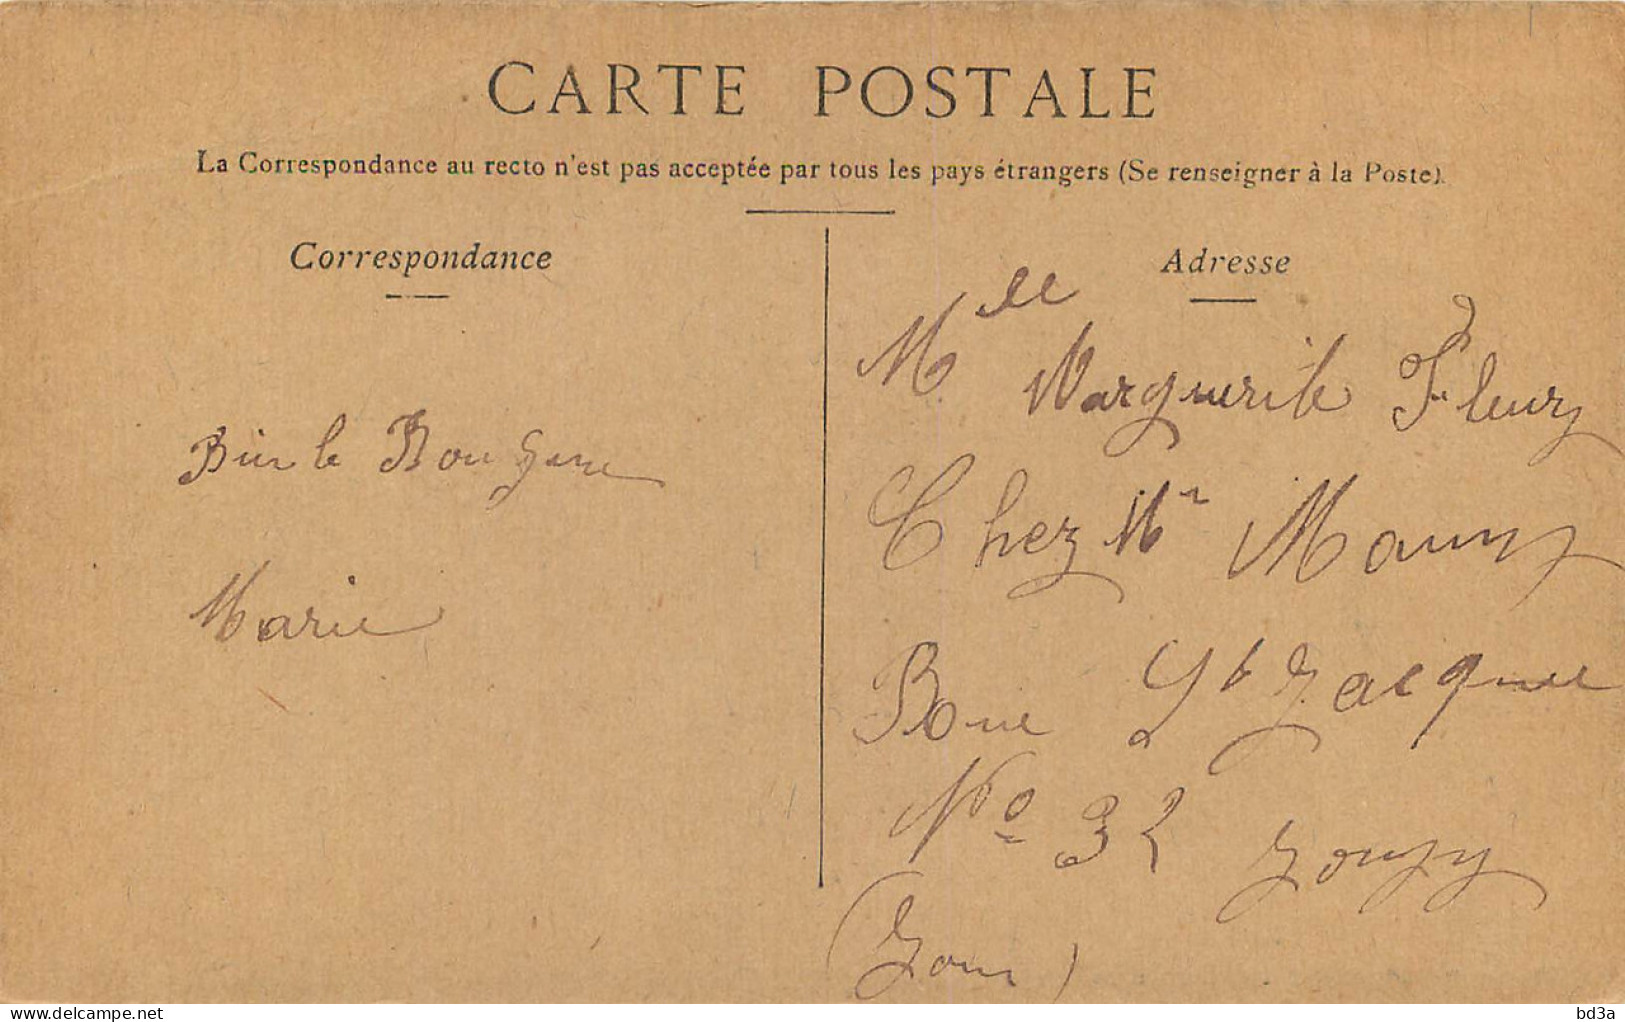 CARTE POSTALE
La Correspondance au recto n'est pas acceptée par tous les pays étrangers (Se renseigner à la Poste).
Correspondance
Bien le Bon
Marie
Adresse
Mlle Marguerite Fleury
Chez Mr
Rue St Jacques
No 32
delcampe.net
bd3a